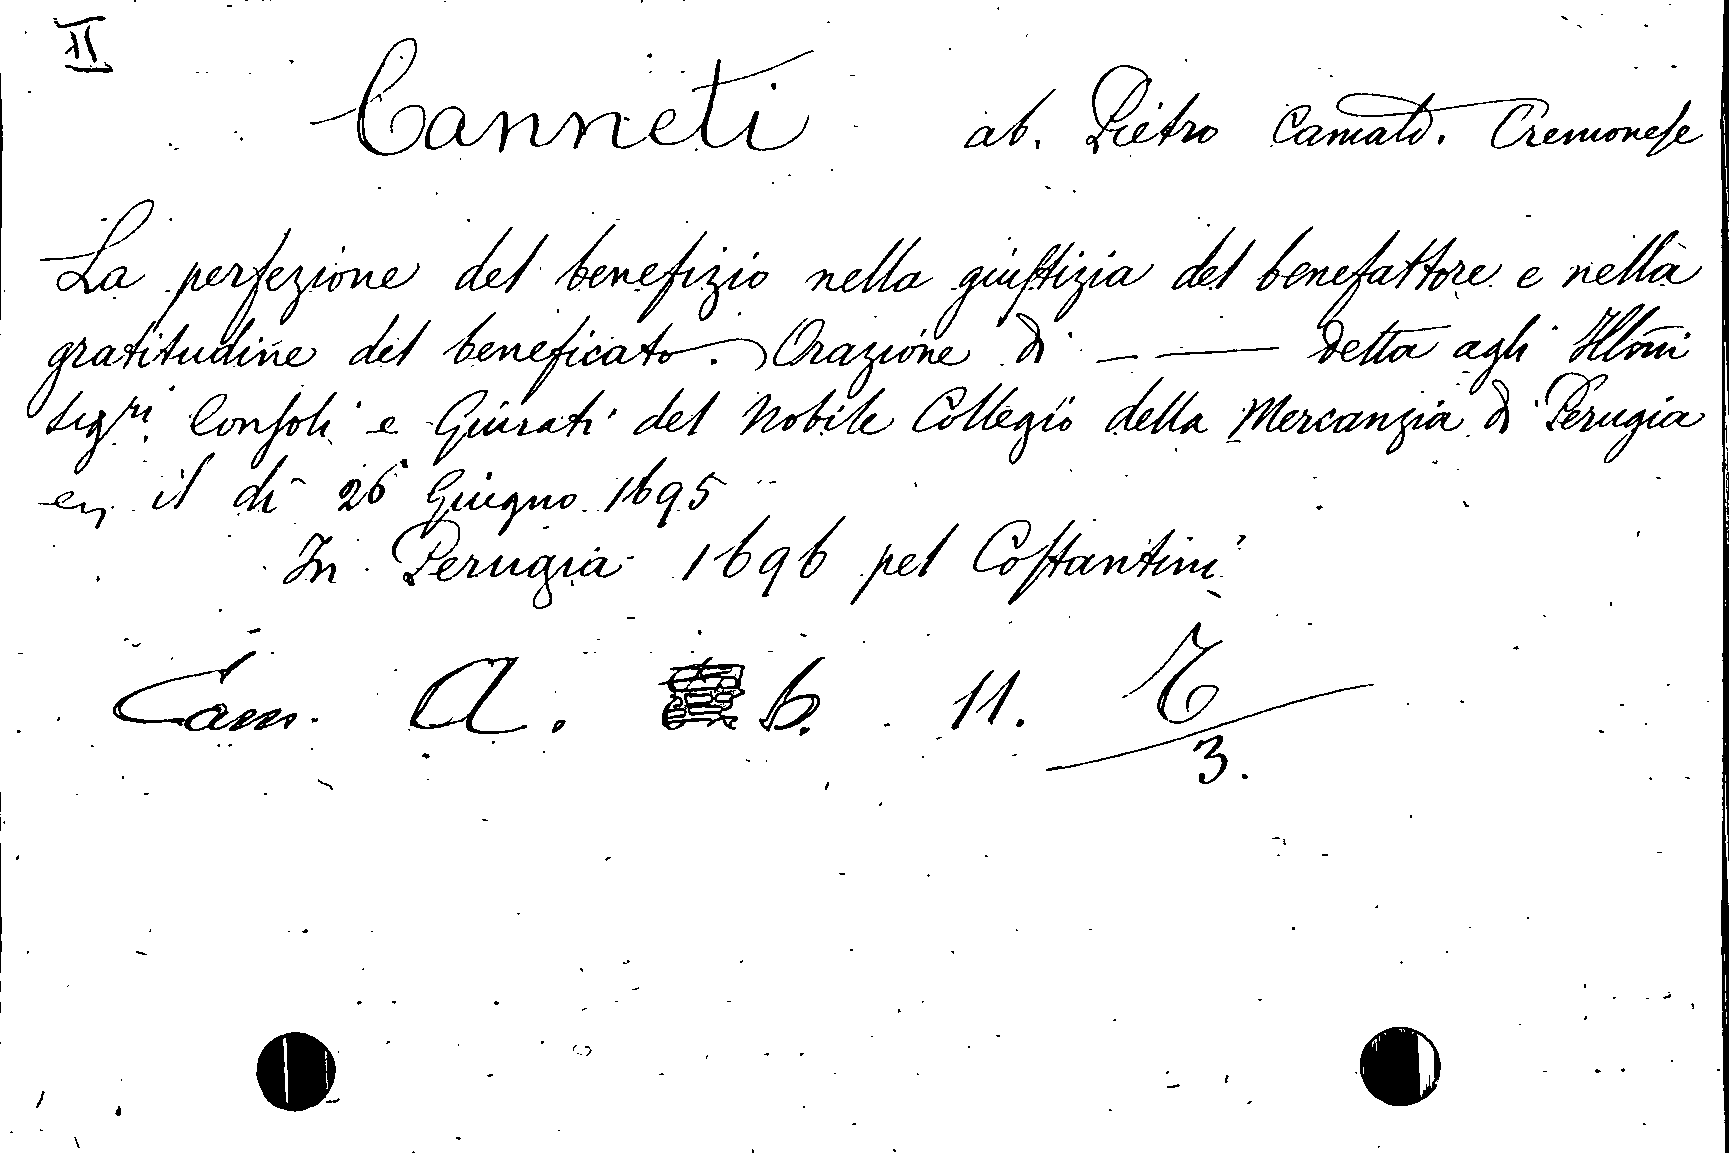 II
Canneti ab. Pietro Camald. Cremonese
La perfezione del benefizio nella giustizia del benefattore e nella
gratitudine del beneficato. Orazione di — — detta agli Illmi
Sigri. Consoli e Giurati del Nobile Collegio della Mercanzia di Perugia
il di 26 Giugno 1695
In Perugia 1696 pel Costantini
Cam. A. b. 11.
3.